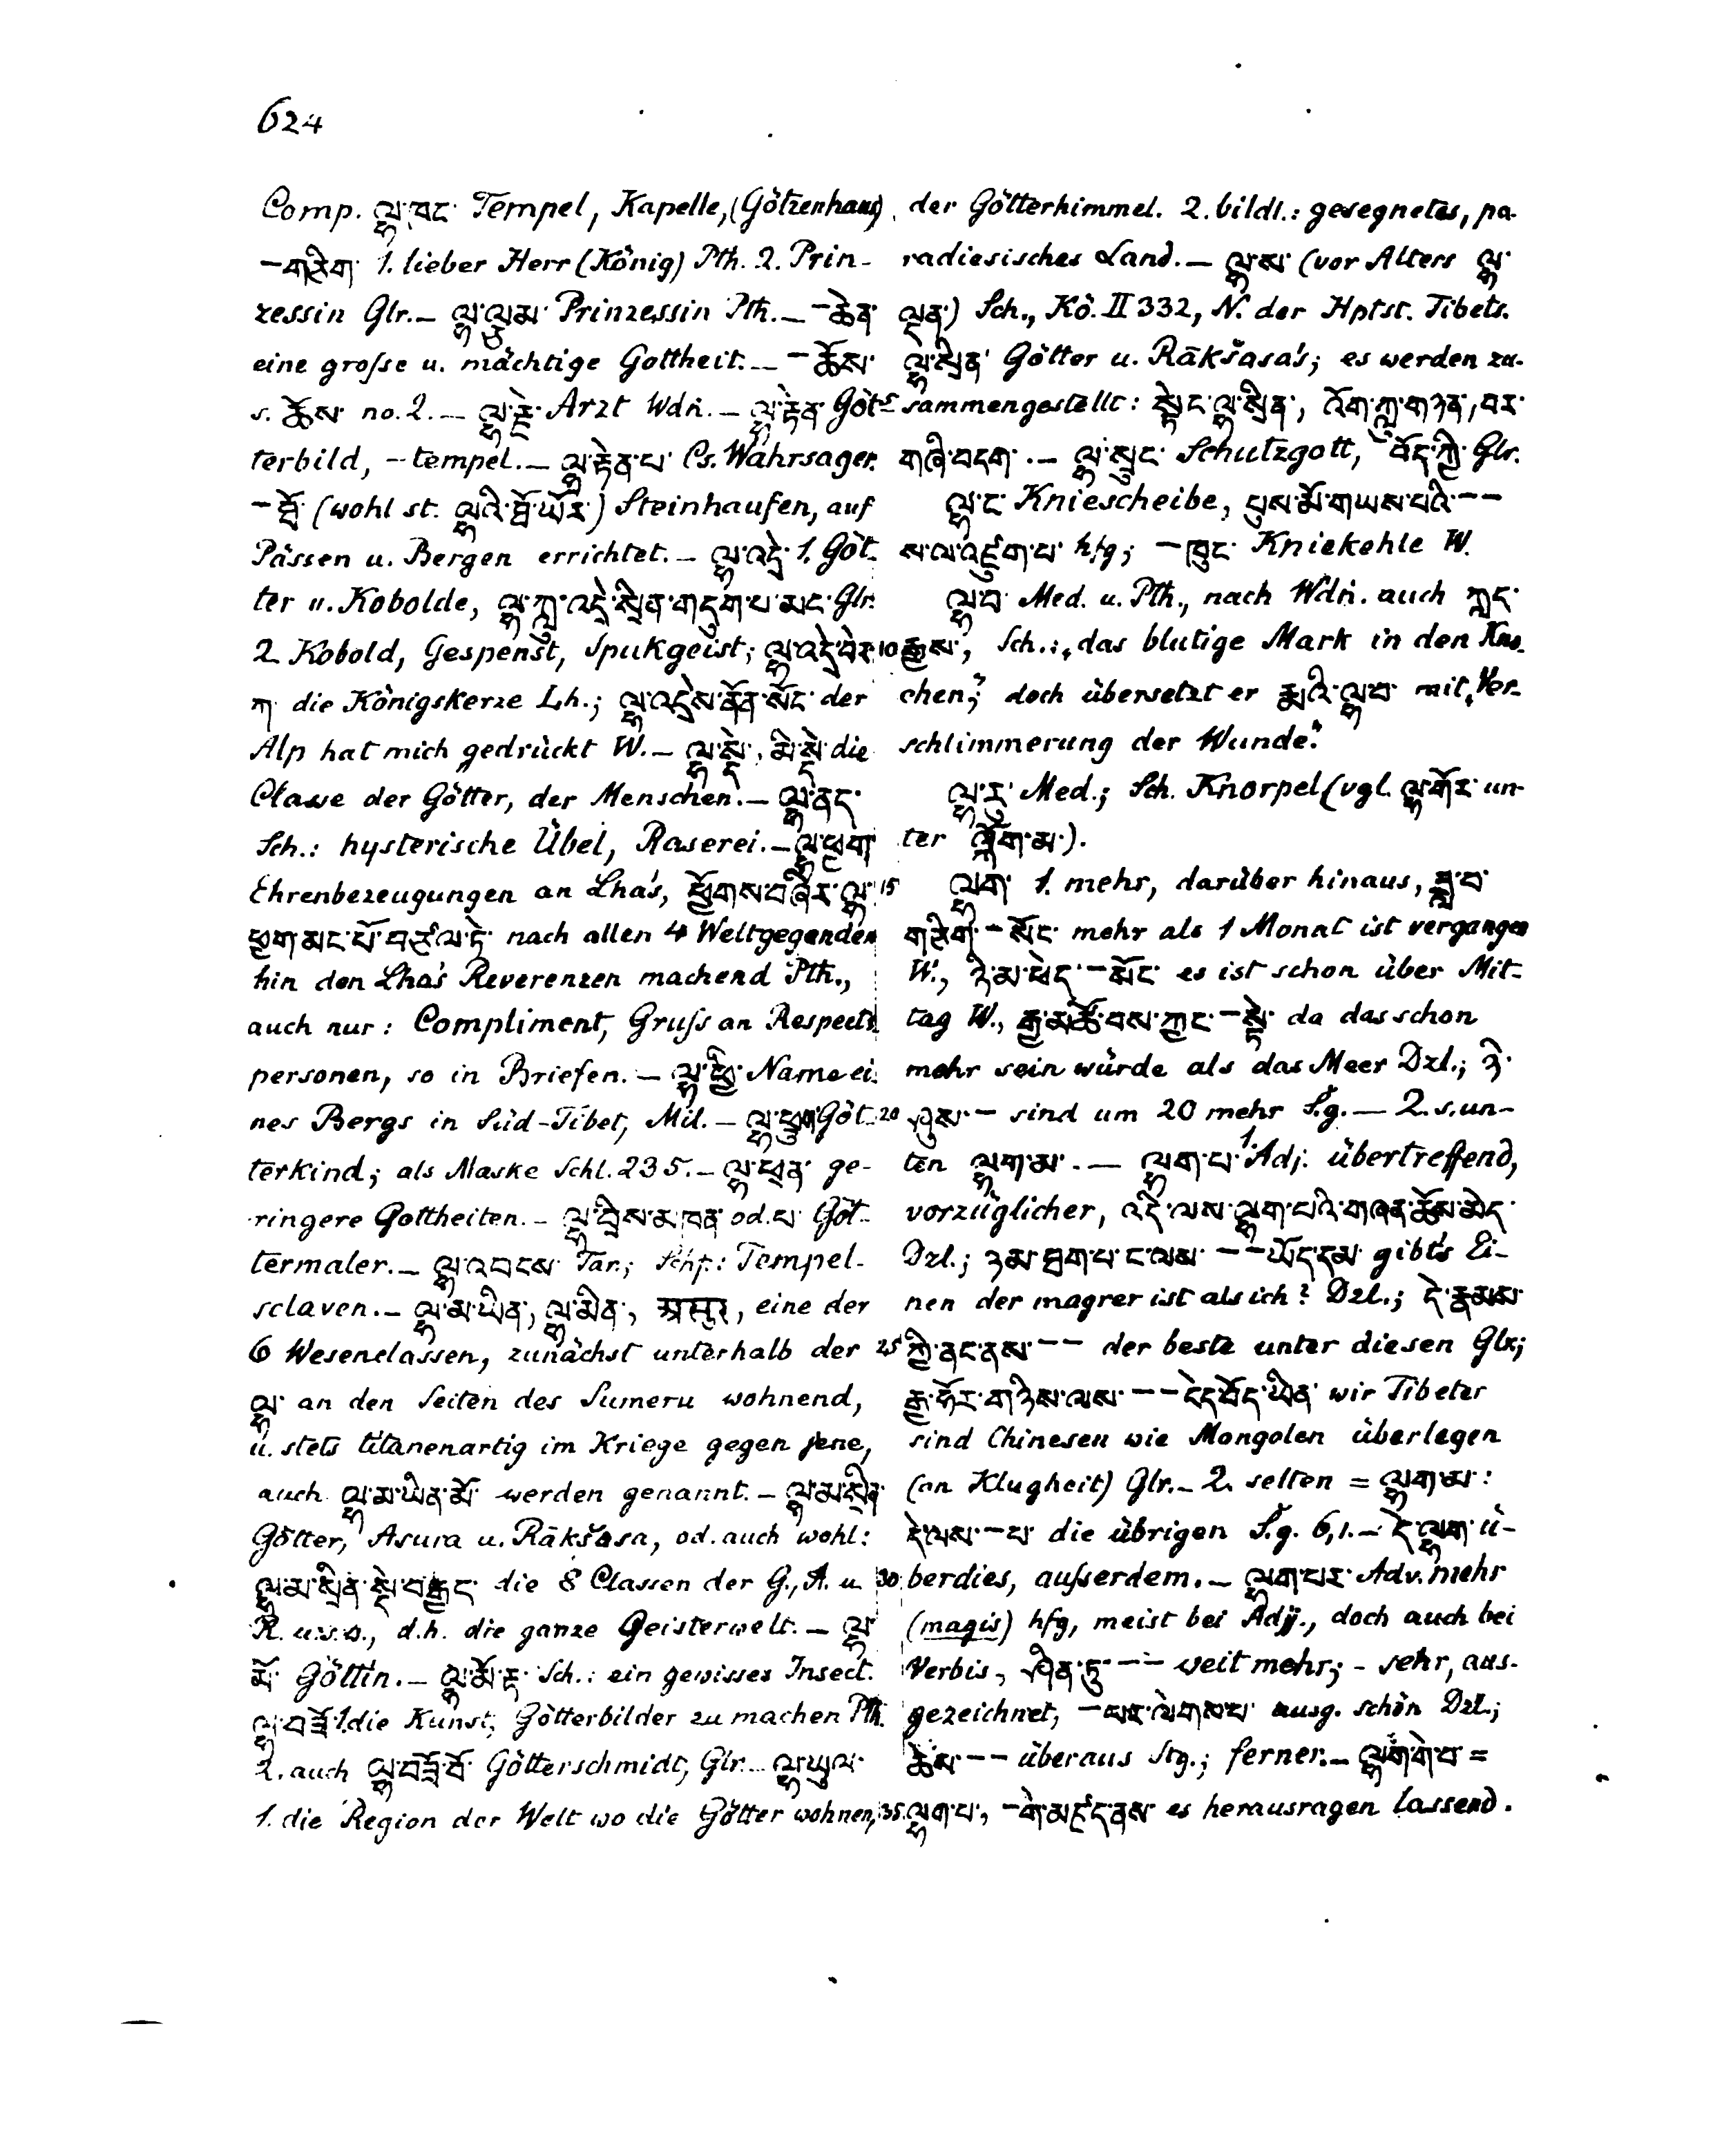 624
Comp. ལྷ་ཁང་ Tempel, Kapelle, (Götzenhaus)
—གཅིག་ 1. lieber Herr (König) Pth. 2. Prin-
zessin Glr.— ལྷ་ལྕམ་ Prinzessin Pth.— —ཆེན་
eine große u. mächtige Gottheit.— —ཆོས་
s. ཆོས་ no. 2.— ལྷ་རྗེ་ Arzt Wdṅ.— ལྷ་རྟེན་ Göt-
terbild, -tempel.— ལྷ་རྟེན་པ་ Cs. Wahrsager.
—ཐོ་ (wohl st. ལྷའི་ཐོ་ཡོར་) Steinhaufen, auf
Pässen u. Bergen errichtet.— ལྷ་འདྲེ་ 1. Göt-
ter u. Kobolde, ལྷ་ཀླུ་འདྲེ་སྲིན་གདུག་པ་མང་ Glr.
2. Kobold, Gespenst, Spukgeist; ལྷ་འདྲེ་བེར་
ཀ་ die Königskerze Lh.; ལྷ་འདྲེས་ནོན་སོང་ der
Alp hat mich gedrückt W.— ལྷ་སྡེ་, མི་སྡེ་ die
Classe der Götter, der Menschen.— ལྷ་ནད་
Sch.: hysterische Übel, Raserei.— ལྷ་ཕྱག་
Ehrenbezeugungen an Lha's, ཕྱོགས་བཞིར་ལྷ་
ཕྱག་མང་པོ་བཙལ་ཏེ་ nach allen 4 Weltgegenden
hin den Lha's Reverenzen machend Pth.,
auch nur: Compliment, Gruß an Respects-
personen, so in Briefen.— ལྷ་ཕྱི་ Name ei-
nes Bergs in Süd-Tibet, Mil.— ལྷ་ཕྲུག་ Göt-
terkind; als Maske Schl. 235.— ལྷ་ཕྲན་ ge-
ringere Gottheiten.— ལྷ་བྲིས་མཁན་ od. པ་ Göt-
termaler.— ལྷ་འབངས་ Tar.; Schf.: Tempel-
sclaven.— ལྷ་མ་ཡིན་, ལྷ་མིན་, असुर, eine der
6 Wesenclassen, zunächst unterhalb der
ལྷ་ an den Seiten des Sumeru wohnend,
u. stets titanenartig im Kriege gegen jene,
auch ལྷ་མ་ཡིན་མོ་ werden genannt.— ལྷ་མ་སྲིན་
Götter, Asura u. Rākšasa, od. auch wohl:
ལྷ་མ་སྲིན་སྡེ་བརྒྱད་ die 8 Classen der G., A. u.
R. u.s.o., d.h. die ganze Geisterwelt.— ལྷ་
མོ་ Göttin.— ལྷ་མོ་རྟ་ Sch.: ein gewisses Insect.
ལྷ་བཟོ་ 1. die Kunst, Götterbilder zu machen Pth.
2. auch ལྷ་བཟོ་བོ་ Götterschmidt, Glr.— ལྷ་ཡུལ་
1. die Region der Welt wo die Götter wohnen,
der Götterhimmel. 2. bildl.: gesegnetes, pa-
radiesisches Land.— ལྷ་ས་ (vor Alters ལྷ་
ལྡན་) Sch., Kö. II 332, N. der Hptst. Tibets.
ལྷ་སྲིན་ Götter u. Rākšasa's; es werden zu-
5 sammengestellt: སྟེང་ལྷ་སྲིན་, འོག་ཀླུ་གཉན་, བར་
གཞི་བདག་.— ལྷ་སྲུང་ Schutzgott, བོད་ཀྱི་ Glr.
ལྷ་ང་ Kniescheibe, པུས་མོ་གཡས་པའི་——
ས་ལ་འཛུག་པ་ hfg; —ཁུང་ Kniekehle W.
ལྷ་བ་ Med. u. Pth., nach Wdṅ. auch ཀླད་
10 རྒྱས་, Sch.: „das blutige Mark in den Kno-
chen;“ doch übersetzt er རྨའི་ལྷ་བ་ mit „Ver-
schlimmerung der Wunde.“
ལྷ་རུ་ Med.; Sch. Knorpel (vgl. ལྷ་གོར་ un-
ter ཀློག་མ་).
15 ལྷག་ 1. mehr, darüber hinaus, ཟླ་བ་
གཅིག་—སོང་ mehr als 1 Monat ist vergangen
W., ཉི་མ་ཕྱེད་—སོང་ es ist schon über Mit-
tag W., རྒྱ་མཚོ་བས་ཀྱང་—སྟེ་ da das schon
mehr sein würde als das Meer Dzl.; ཉི་
20 ཤུས་— sind um 20 mehr S̆.g.— 2. s. un-
ten ལྷག་མ་.— ལྷག་པ་ 1. Adj. übertreffend,
vorzüglicher, འདི་ལས་ལྷག་པའི་གཞན་ཆོས་མེད་
Dzl.; ཉམ་ཐག་པ་ང་ལས་——ཡོད་དམ་ gibt's Ei-
nen der magrer ist als ich? Dzl.; དེ་རྣམས་
25 ཀྱི་ནང་ནས་—— der beste unter diesen Glr.;
རྒྱ་ཧོར་གཉིས་ལས་——ངེད་བོད་ཡིན་ wir Tibeter
sind Chinesen wie Mongolen überlegen
(an Klugheit) Glr.— 2. selten = ལྷག་མ་:
དེ་ལས་—པ་ die übrigen S̆.g. 6,1.— དེ་ལྷག་ ü-
30 berdies, außerdem.— ལྷག་པར་ Adv. mehr
(magis) hfg, meist bei Adjj., doch auch bei
Verbis, ཤིན་ཏུ་—— weit mehr; - sehr, aus-
gezeichnet, —པར་ལེགས་པ་ ausg. schön Dzl.;
ཆེས་—— überaus Stg.; ferner.— ལྷག་གེ་བ་ =
35. ལྷག་པ་, —གེ་མཛད་ནས་ es herausragen lassend.